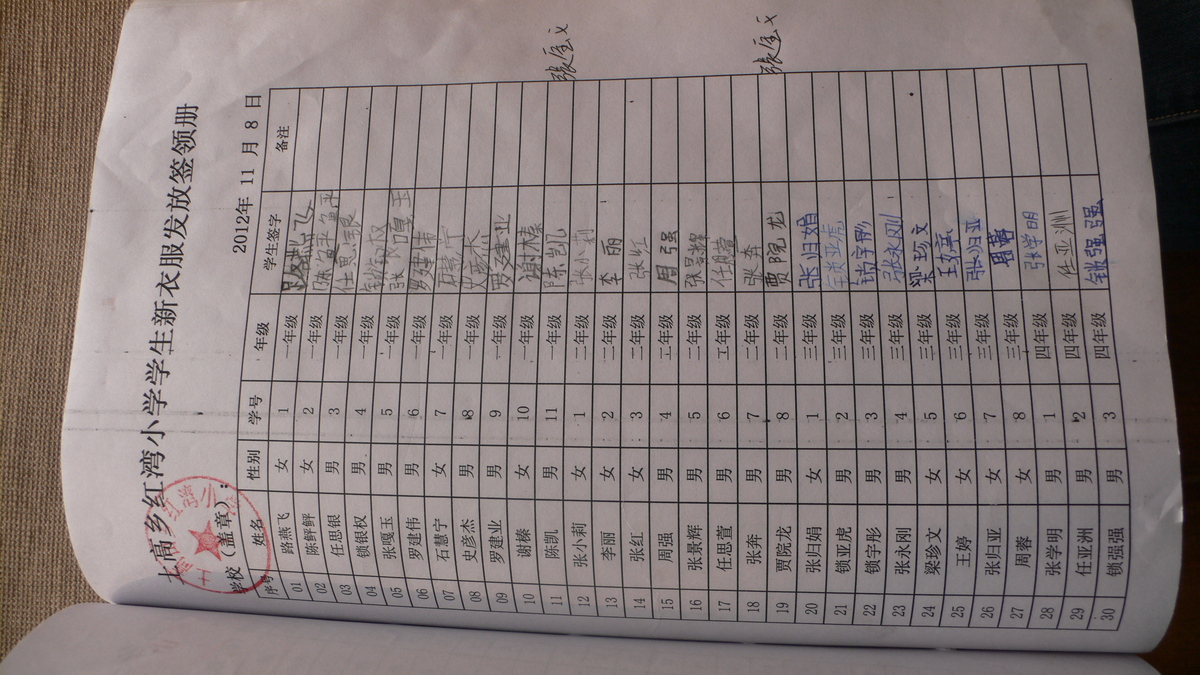 高乡红湾小学学生新衣服发放签领册
学校（盖章）： 2012年 11 月 8 日
序号 姓名 性别 学号 年级 学生签字 备注
01 路燕飞 女 1 一年级 路燕飞
02 陈鲆鲆 女 2 一年级
03 任思银 男 3 一年级 任思银
04 锁银权 男 4 一年级 锁银权
05 张嘎玉 男 5 一年级 张嘎玉
06 罗建伟 男 6 一年级 罗建伟
07 石慧宁 女 7 一年级 石慧宁
08 史彦杰 男 8 一年级 史彦杰
09 罗建业 男 9 一年级 罗建业
10 谢榛 女 10 一年级 谢榛
11 陈凯 男 11 一年级 陈凯
12 张小莉 女 1 二年级 张小利
13 李丽 女 2 二年级 李丽
14 张红 女 3 二年级 张红
15 周强 男 4 二年级 周强
16 张景辉 男 5 二年级 张景辉
17 任思萱 男 6 二年级 任思萱
18 张奔 男 7 二年级 张奔
19 贾院龙 男 8 二年级 贾院龙
20 张归娟 女 1 三年级 张归娟
21 锁亚虎 男 2 三年级 锁亚虎
22 锁宇彤 男 3 三年级 锁宇彤
23 张永刚 男 4 三年级 张永刚
24 梁珍文 女 5 三年级 梁珍文
25 王婷 女 6 三年级 王婷
26 张归亚 女 7 三年级 张归亚
27 周蓉 女 8 三年级 周蓉
28 张学明 男 1 四年级 张学明
29 任亚洲 男 2 四年级 任亚洲
30 锁强强 男 3 四年级 锁强强